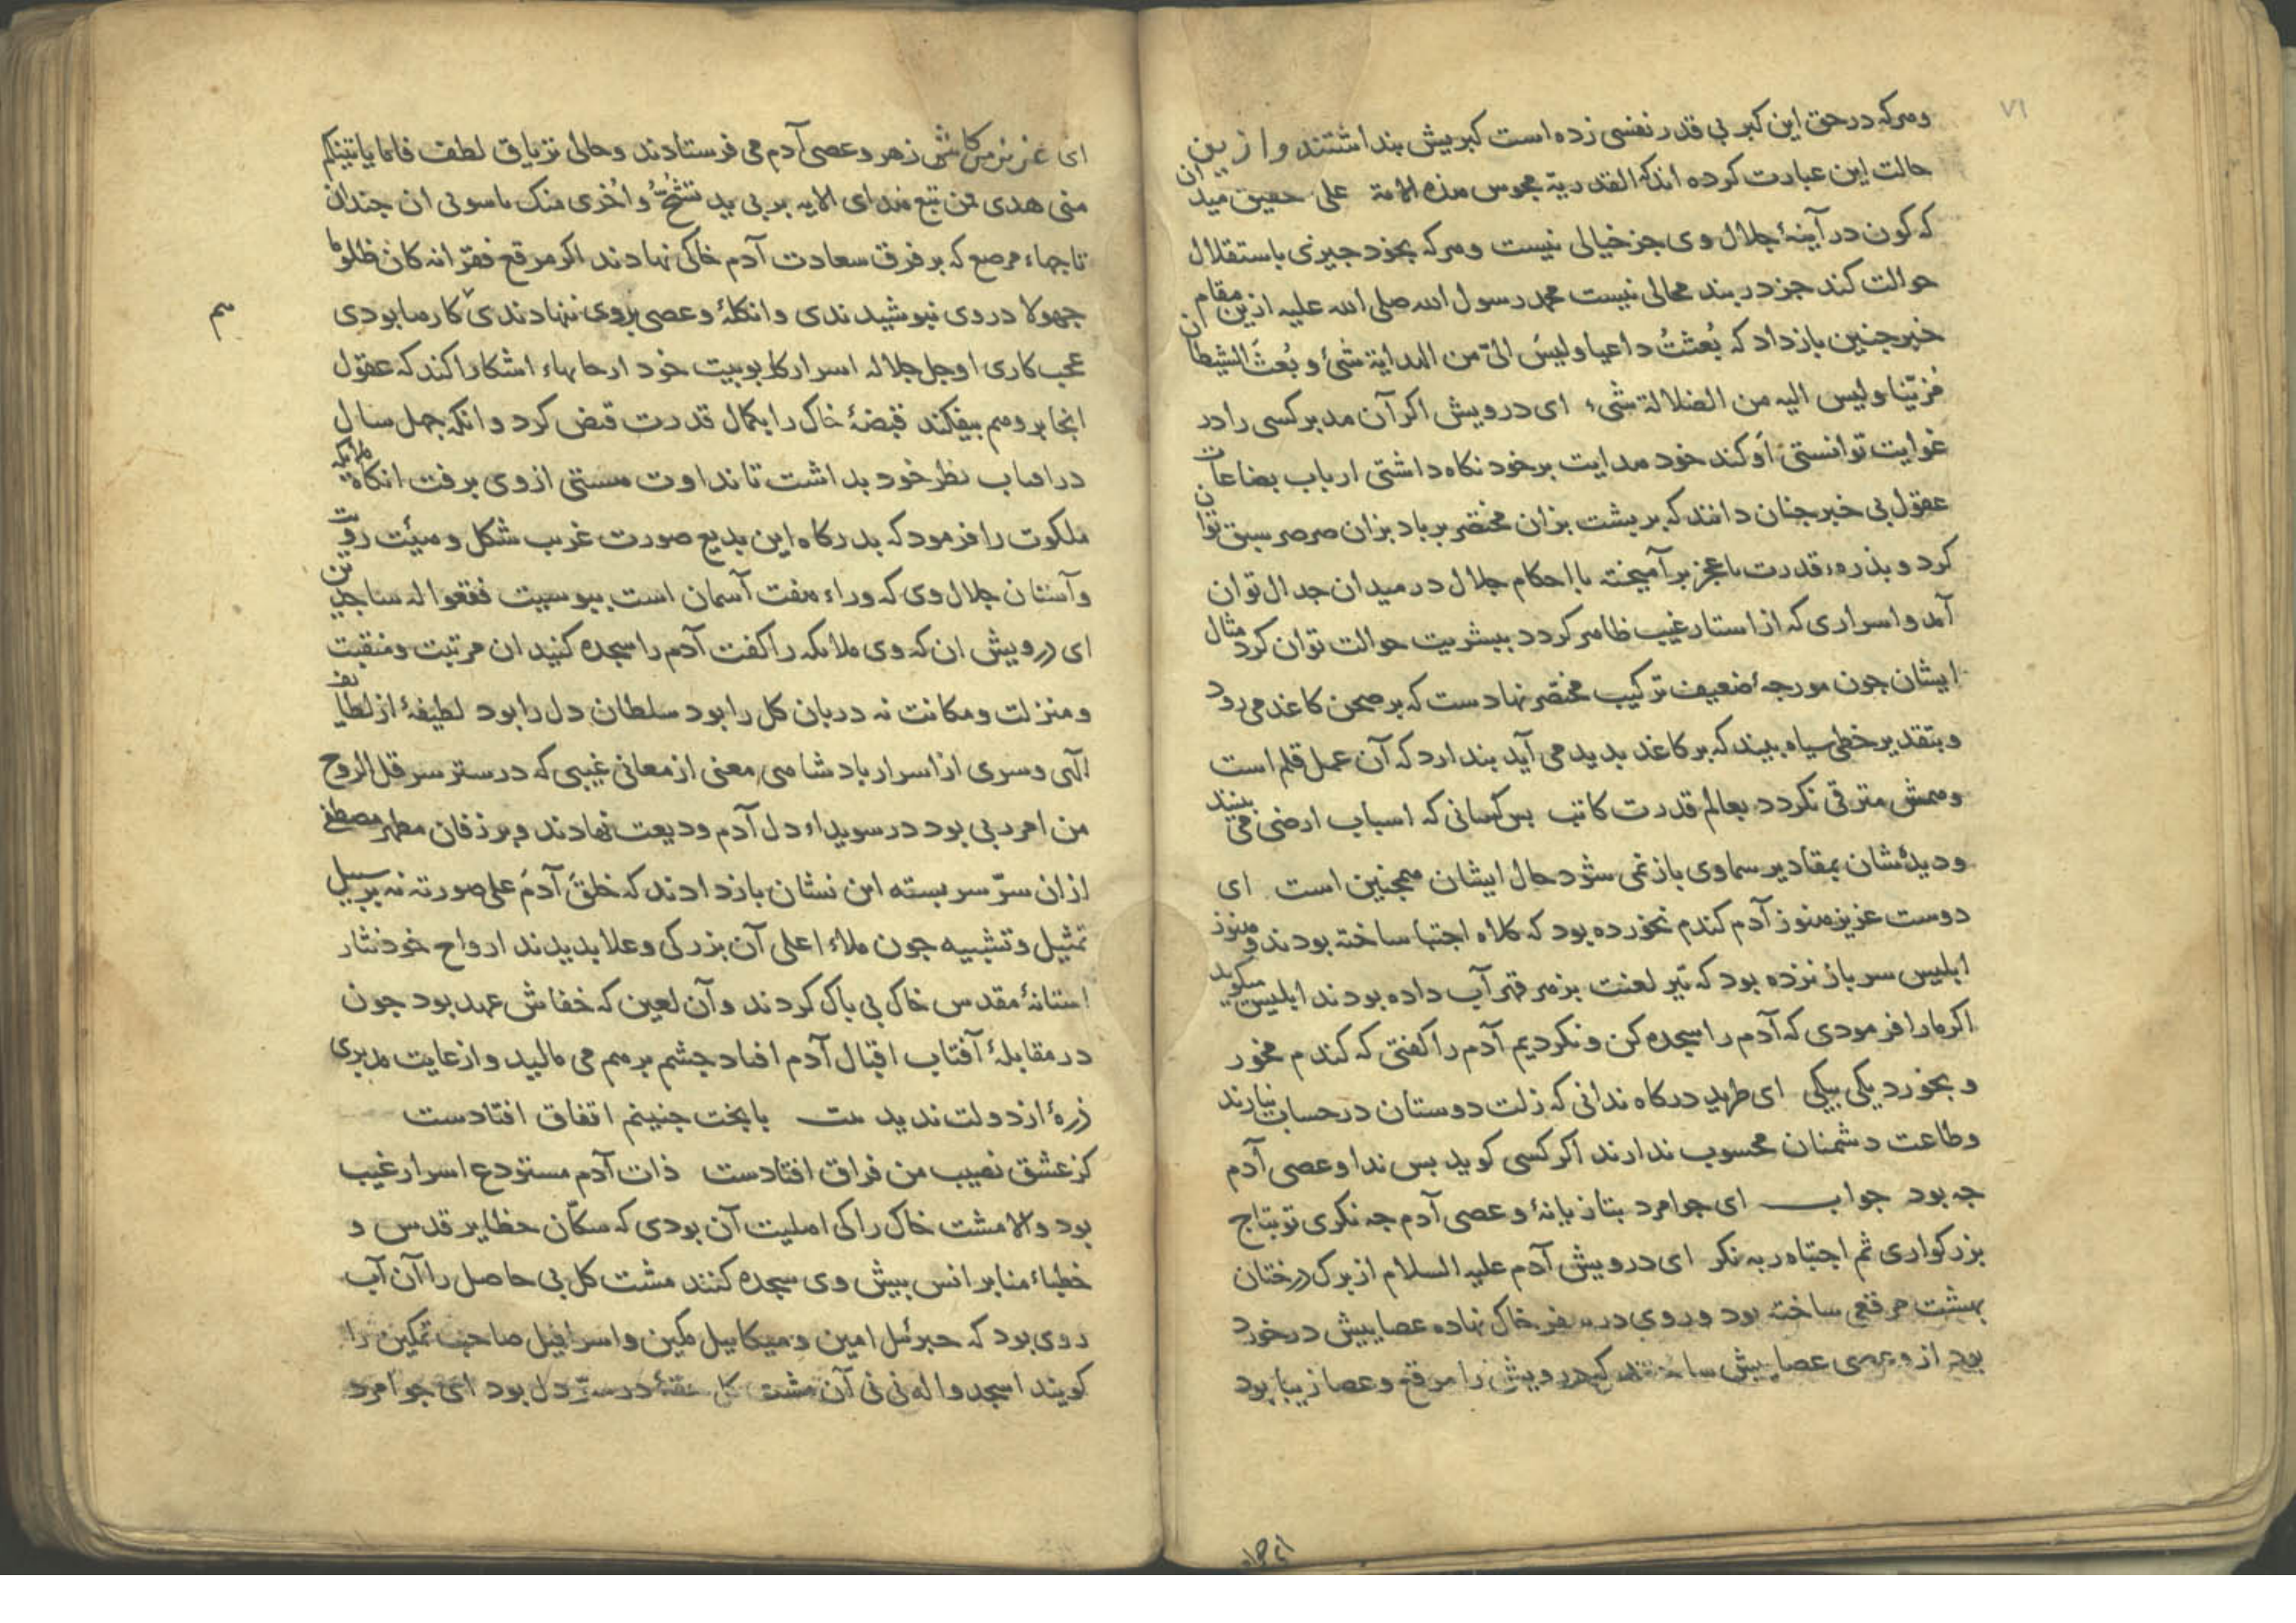 ۷۱
وهرکه در حق این کبر بی قدر نفسی زده است کبریش بنداشتند و ازین
حالت این عبارت کرده اند که القدریة مجوس هذه الامة علی حقیق میدان
که کون در آینهٔ جلال وی جز خیالی نیست وهرکه بخود جیزی باستقلال
حوالت کند جز در بند محالی نیست محمد رسول الله صلی الله علیه ازین مقام
خبر جنین باز داد که بُعثتُ داعیا ولیسَ الیّ من الهدایة شیٔ و بُعثَ الشیطان
مُزیّنا ولیس الیه من الضلالة شیء ای درویش اکر آن مدبر کسی را در
غوایت توانستی اوکند خود هدایت بر خود نکاه داشتی ارباب بضاعات
عقول بی خبر جنان دانند که بر بشت بزان مختصر بر باد بزان صرصر سبق توان
کرد و بذرهٔ قدرت با عجز بر آمیخته با احکام جلال در میدان جدال توان
آمد و اسراری که از استار غیب ظاهر کردد ببشریت حوالت توان کرد مثال
ایشان جون مورجهٔ ضعیف ترکیب مختصر نهادست که بر صحن کاغذ می رود
و بتقدیر خطی سیاه بیند که بر کاغذ بدید می آید بندارد که آن عمل قلم است
وهمش مترقی نکردد بعالم قدرت کاتب بس کسانی که اسباب ارضی می بینند
و دیدهٔشان بمقادیر سماوی باز نمی شود حال ایشان همجنین است ای
دوست عزیز هنوز آدم کندم نخورده بود که کلاه اجتبا ساخته بودند و هنوز
ابلیس سر باز نزده بود که تیر لعنت بزهر قهر آب داده بودند ابلیس میکوید
اکر مارا فرمودی که آدم را سجده کن و نکردیم آدم را کفتی که کندم مخور
و بخورد یکی بیکی ای طرید درکاه ندانی که زلت دوستان در حساب نیارند
و طاعت دشمنان محسوب ندارند اکر کسی کوید بس ندا وعصی آدم
جه بود جواب ای جوامرد بتازیانهٔ وعصی آدم جه نکری تو بتاج
بزرکواری ثم اجتباه ربه نکر ای درویش آدم علیه السلام از برک درختان
بهشت مرقعی ساخته بود و روی در سفر خاک نهاده عصایش در خورد
بود از وعصی عصایش ساختند که درویش را مرقع و عصا زیبا بود
ای عزیز هر کاسی زهر وعصی آدم می فرستادند و حالی تریاق لطف فاما یاتینکم
منی هدی فمن تبع هدای الایه بر بی ید تشُحُّ و اُخری منک تاسونی ان جندان
تاجهاء مرصع که بر فرق سعادت آدم خاکی نهادند اکر مرقع فقر انه کان ظلوما
جهولا در وی نبوشیدندی و انکلهٔ وعصی بروی ننهادندی کارها بودی
هم
عجب کاری او جل جلاله اسرار کار بوبیت خود ارجاها آشکارا کند که عقول
انجا بر وهم بیفکند قبضهٔ خاک را بکمال قدرت قبض کرد و انکه جهل سال
در افتاب نظر خود بداشت تا نداوت هستی از وی برفت انکاه ملایکه
ملکوت را فرمود که بدرکاه این بدیع صورت غریب شکل و هیئت رویت
و آستان جلال وی که وراء هفت آسمان است ببوسیت فقعوا له ساجدین
ای درویش ان که وی ملایکه را کفت آدم را سجده کنید ان مرتبت ومنقبت
و منزلت و مکانت نه دربان کل را بود سلطان دل را بود لطیفهٔ از لطایف
الهی و سری از اسرار بادشاهی معنی از معانی غیبی که در ستر سر قل الروح
من امر ربی بود در سویداء دل آدم ودیعت نهادند و بر زفان مطهر مصطفی
از ان سرّ سر بسته این نشان باز دادند که خلقَ آدمَ علی صورته نه بر سبیل
تمثیل و تشبیه جون ملاء اعلی آن بزرکی و علا بدیدند ارواح خود نثار
استانهٔ مقدس خاک بی باک کردند و آن لعین که خفاش عهد بود جون
در مقابلهٔ آفتاب اقبال آدم افتاد جشم بر هم می مالید و از غایت مدبری
ذرهٔ از دولت ندید بیت با بخت جنینم اتفاق افتادست
کز عشق نصیب من فراق افتادست ذات آدم مستودع اسرار غیب
بود والا مشت خاک را کی اهلیت آن بودی که سکّان حظایر قدس و
خطباء منابر انس بیش وی سجده کنند مشت کل بی حاصل را آن آب
روی بود که جبرئیل امین و میکاییل مکین و اسرافیل صاحب تمکین را
کویند اسجدوا له نی نی آن مشت کل در ستر دل بود ای جوامرد